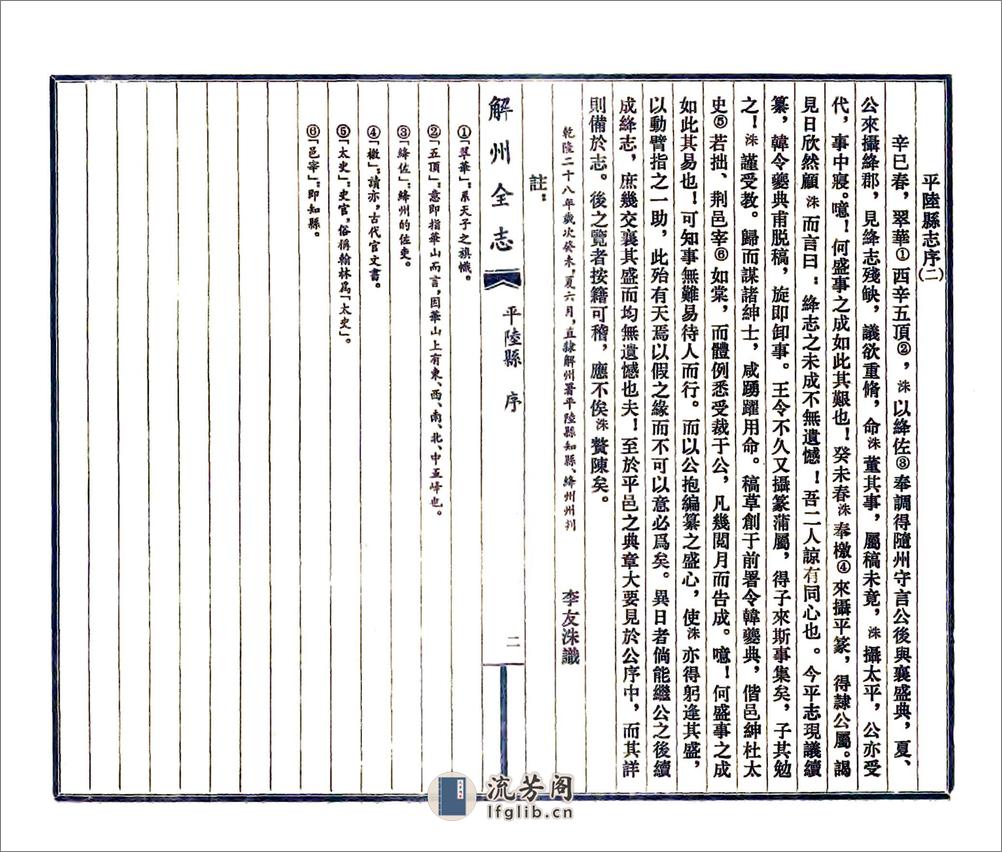 平陸縣志序(二)
辛巳春，翠華①西幸五頂②，洙以絳佐③奉調得隨州守言公後與襄盛典，夏、
公來攝絳郡，見絳志殘缺，議欲重脩，命洙董其事，屬稿未竟，洙攝太平，公亦受
代，事中寢。噫！何盛事之成如此其艱也！癸未春洙奉檄④來攝平篆，得隸公屬。謁
見日欣然顧洙而言曰：絳志之未成不無遺憾！吾二人諒有同心也。今平志現議續
纂，韓令夔典甫脱稿，旋即卸事。王令不久又攝篆蒲屬，得子來斯事集矣，子其勉
之！洙謹受教。歸而謀諸紳士，咸踴躍用命。稿草創于前署令韓夔典，偕邑紳杜太
史⑤若拙、荆邑宰⑥如棠，而體例悉受裁于公，凡幾閲月而告成。噫！何盛事之成
如此其易也！可知事無難易待人而行。而以公抱編纂之盛心，使洙亦得躬逢其盛，
以動臂指之一助，此殆有天焉以假之緣而不可以意必爲矣。異日者倘能繼公之後續
成絳志，庶幾交襄其盛而均無遺憾也夫！至於平邑之典章大要見於公序中，而其詳
則備於志。後之覽者按籍可稽，應不俟洙贅陳矣。
乾隆二十八年歲次癸未，夏六月，直隸解州署平陸縣知縣、絳州州判　李友洙識
註：
解州全志　平陸縣　序　二
①「翠華」：系天子之旗幟。
②「五頂」：意即指華山而言，因華山上有東、西、南、北、中五峰也。
③「絳佐」：絳州的佐吏。
④「檄」：讀亦，古代官文書。
⑤「太史」：史官，俗稱翰林爲「太史」。
⑥「邑宰」：即知縣。
流芳阁
lfglib.cn